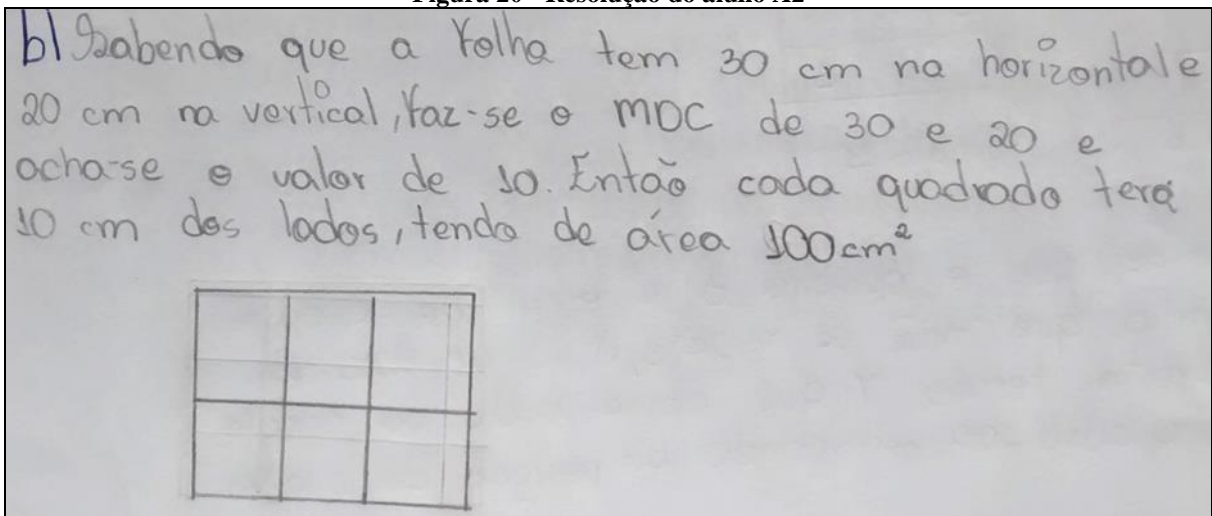 Figura 20 - Resolução do aluno A2
b) Sabendo que a folha tem 30 cm na horizontal e
20 cm na vertical, faz-se o MDC de 30 e 20 e
acha-se o valor de 10. Então cada quadrado terá
10 cm dos lados, tendo de área 100 cm²